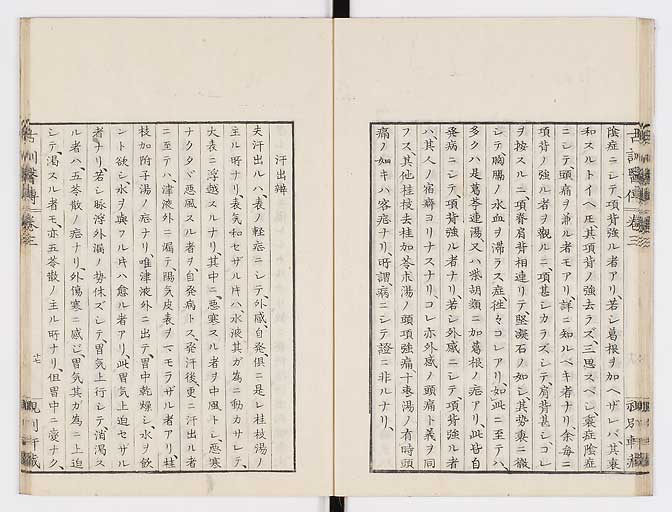 陰症ニシテ項背強ル者アリ、若シ葛根ヲ加ヘザレバ、其衰
和スルトイヘ𪜈其項背ノ強去ラズ、三思スベシ、衰症陰症
ニシテ頭痛ヲ兼ル者モアリ、詳ニ知ルベキ者ナリ余毎ニ
項背ノ強ル者ヲ觀ルニ、項甚シカラズシテ、肩背甚シ、コレ
ヲ按スルニ項脊肩背相連リテ堅凝石ノ如シ、其勢裏ニ徹
シテ、胸膈ノ水血ヲ滞ラス症、往々コレアリ、如此ニ至テハ、
多クハ是葛芩連湯又ハ柴胡類ニ加葛根ノ症アリ、此皆自
発病ニシテ、項背強ル者ナリ、若シ外感ニシテ、項背強ル者
ハ、其人ノ宿癖ヨリナスナリ、コレ亦外感ノ頭痛ト義ヲ同
フス、其他桂枝去桂加苓朮湯ノ頭項強痛十棗湯ノ有時頭
痛ノ如キハ客症ナリ、所謂病ニシテ證ニ非ルナリ、
汗出辨
夫汗出ルハ、表ノ軽症ニシテ、外感、自発、俱ニ是レ桂枝湯ノ
主ル所ナリ、表気和セザル片ハ、水液其ガ為ニ動カサレテ、
大表ニ浮越スルナリ、其中ニ、悪寒スル者ヲ中風トシ悪寒
ナクタヾ悪風スル者ヲ、自発病トス、発汗後、更ニ汗出ル者
ニ至テハ、津液外ニ漏テ、陽気皮表ヲヱモラザル者アリ、桂
枝加附子湯ノ症ナリ唯津液外ニ出テ、胃中乾燥シ水ヲ飲
ント欲シ、水ヲ與フル片ハ愈ル者アリ、此胃気上迫セザル
者ナリ、若シ脉浮外漏ノ勢休ズシテ胃気上行シテ、消渇ス
ル者ハ五苓散ノ症ナリ外傷寒ニ感ジ胃気其ガ為ニ上迫
シテ、渇スル者モ、亦五苓散ノ主ル所ナリ、但胃中ニ変ナク、